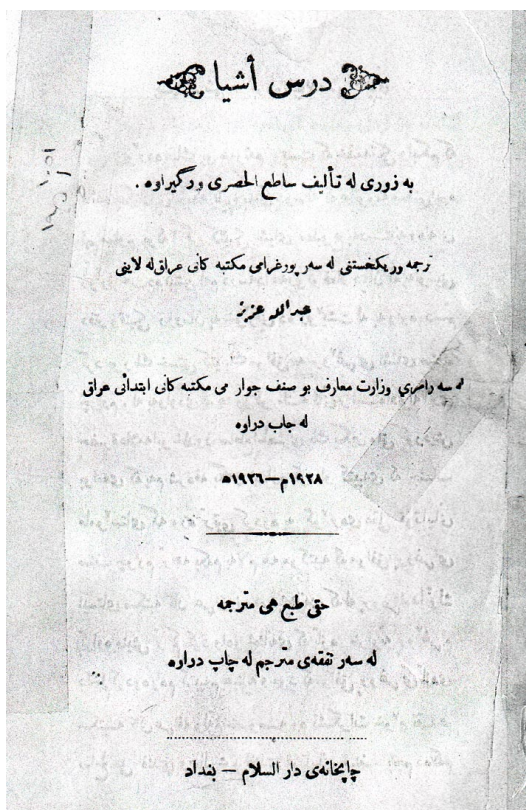 درس أشيا
به زوری له تأليف ساطع الحصری ورگيراوه .
ترجمه وريکخستنی له سه ر پورغرامی مکتبه کانی عراق له لاينی
عبدالله عزيز
له سه رامری وزارت معارف بو صنف جوار می مکتبه کانی ابتدائی عراقی
له جاپ دراوه
١٩٢٨م–١٩٢٦ه
حقی طبع هی مترجمه
له سه ر نفقه‌ی مترجم له چاپ دراوه
چاپخانه‌ی دار السلام – بغداد